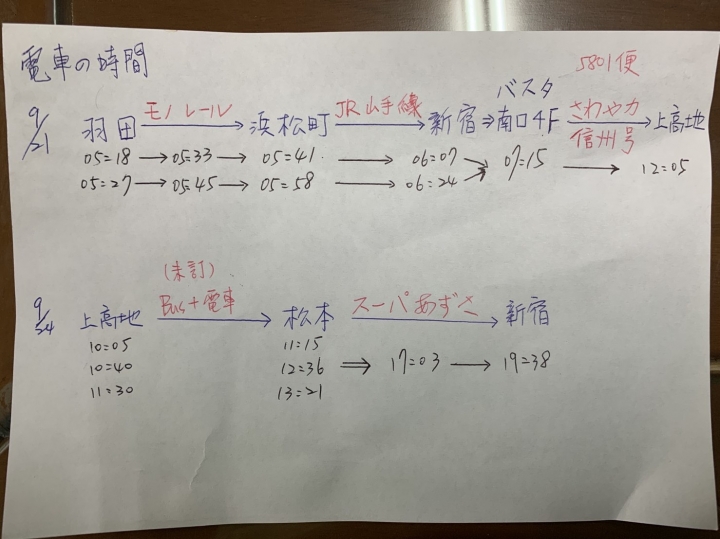 電車の時間
5801便
バスタ
9/21 羽田 モノレール 浜松町 JR山手線 新宿⇒南口4F さわやか信州号 上高地
05:18→05:33→05:41→06:07
07:15→12:05
05:27→05:45→05:58→06:24
(未訂)
9/24 上高地 Bus+電車 松本 スーパあずさ 新宿
10:05 11:15
10:40 12:36⇒17:03→19:38
11:30 13:21